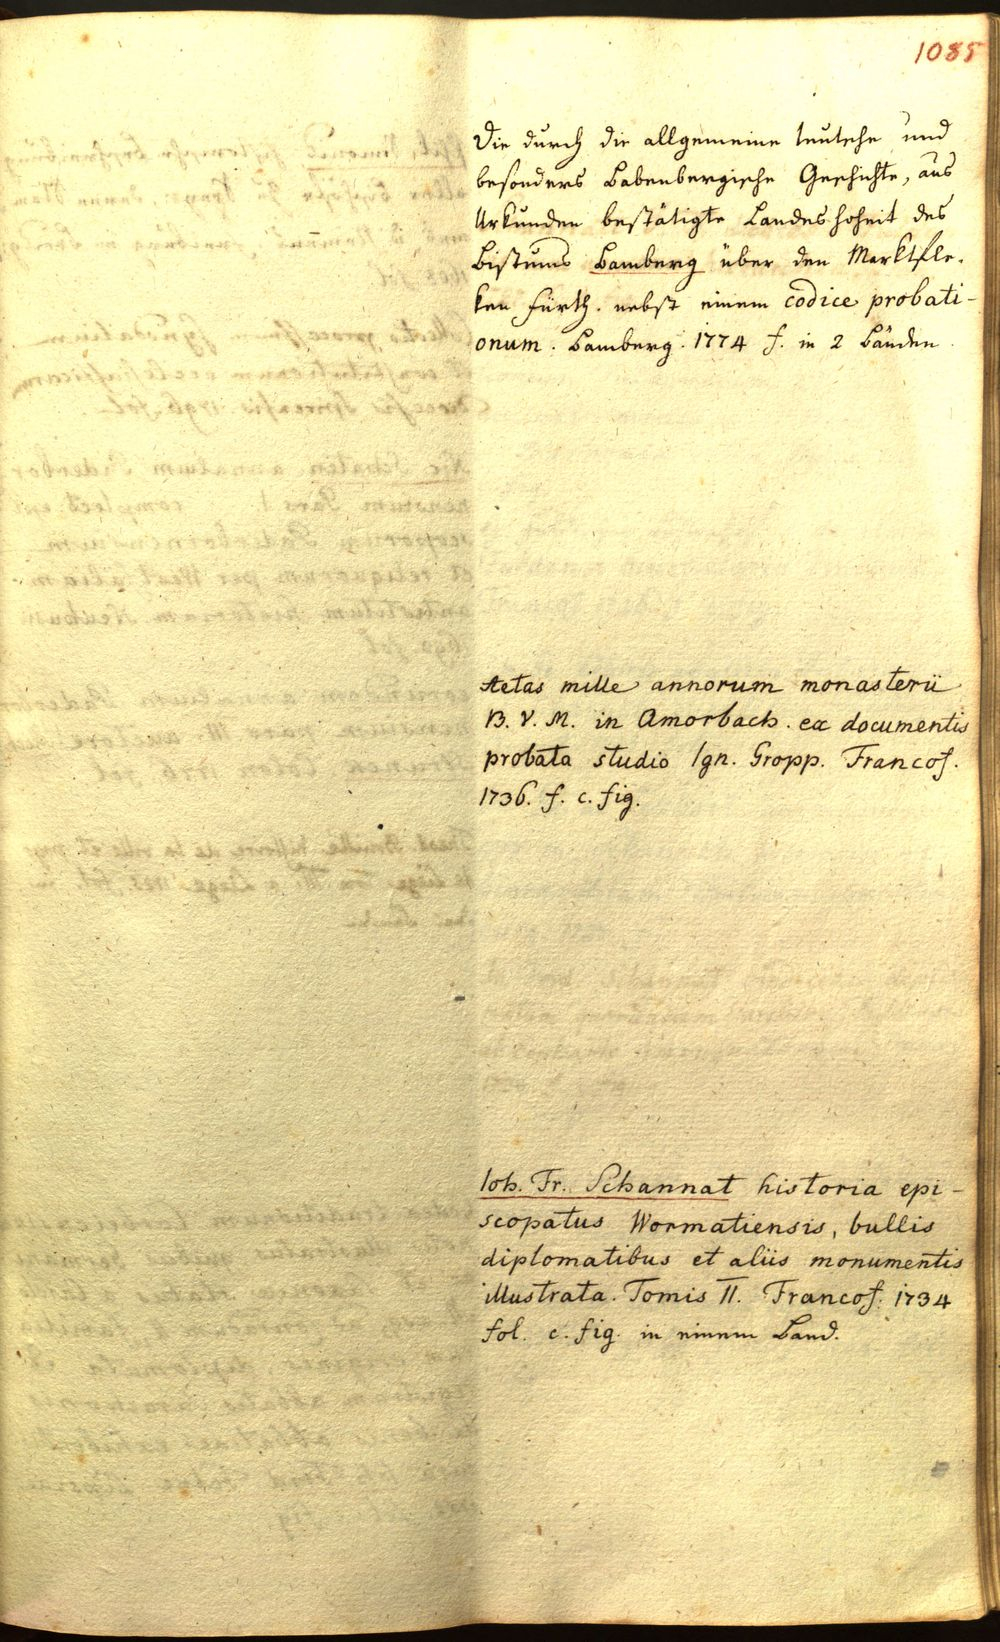 1085
Die durch die allgemeine teutsche und
besonders Babenbergische Geschichte, aus
Urkunden bestätigte Landeshoheit des
Bistums Bamberg über den Marktfle-
ken Fürth. nebst einem codice probati-
onum. Bamberg. 1774 f. in 2 Bänden.
Aetas mille annorum monasterii
B. V. M. in Amorbach. ex documentis
probata studio Ign. Gropp. Francof.
1736. f. c. fig.
Ioh. Fr. Schannat historia epi-
scopatus Wormatiensis, bullis
diplomatibus et aliis monumentis
illustrata. Tomis II. Francof. 1734
fol. c. fig. in einem Band.